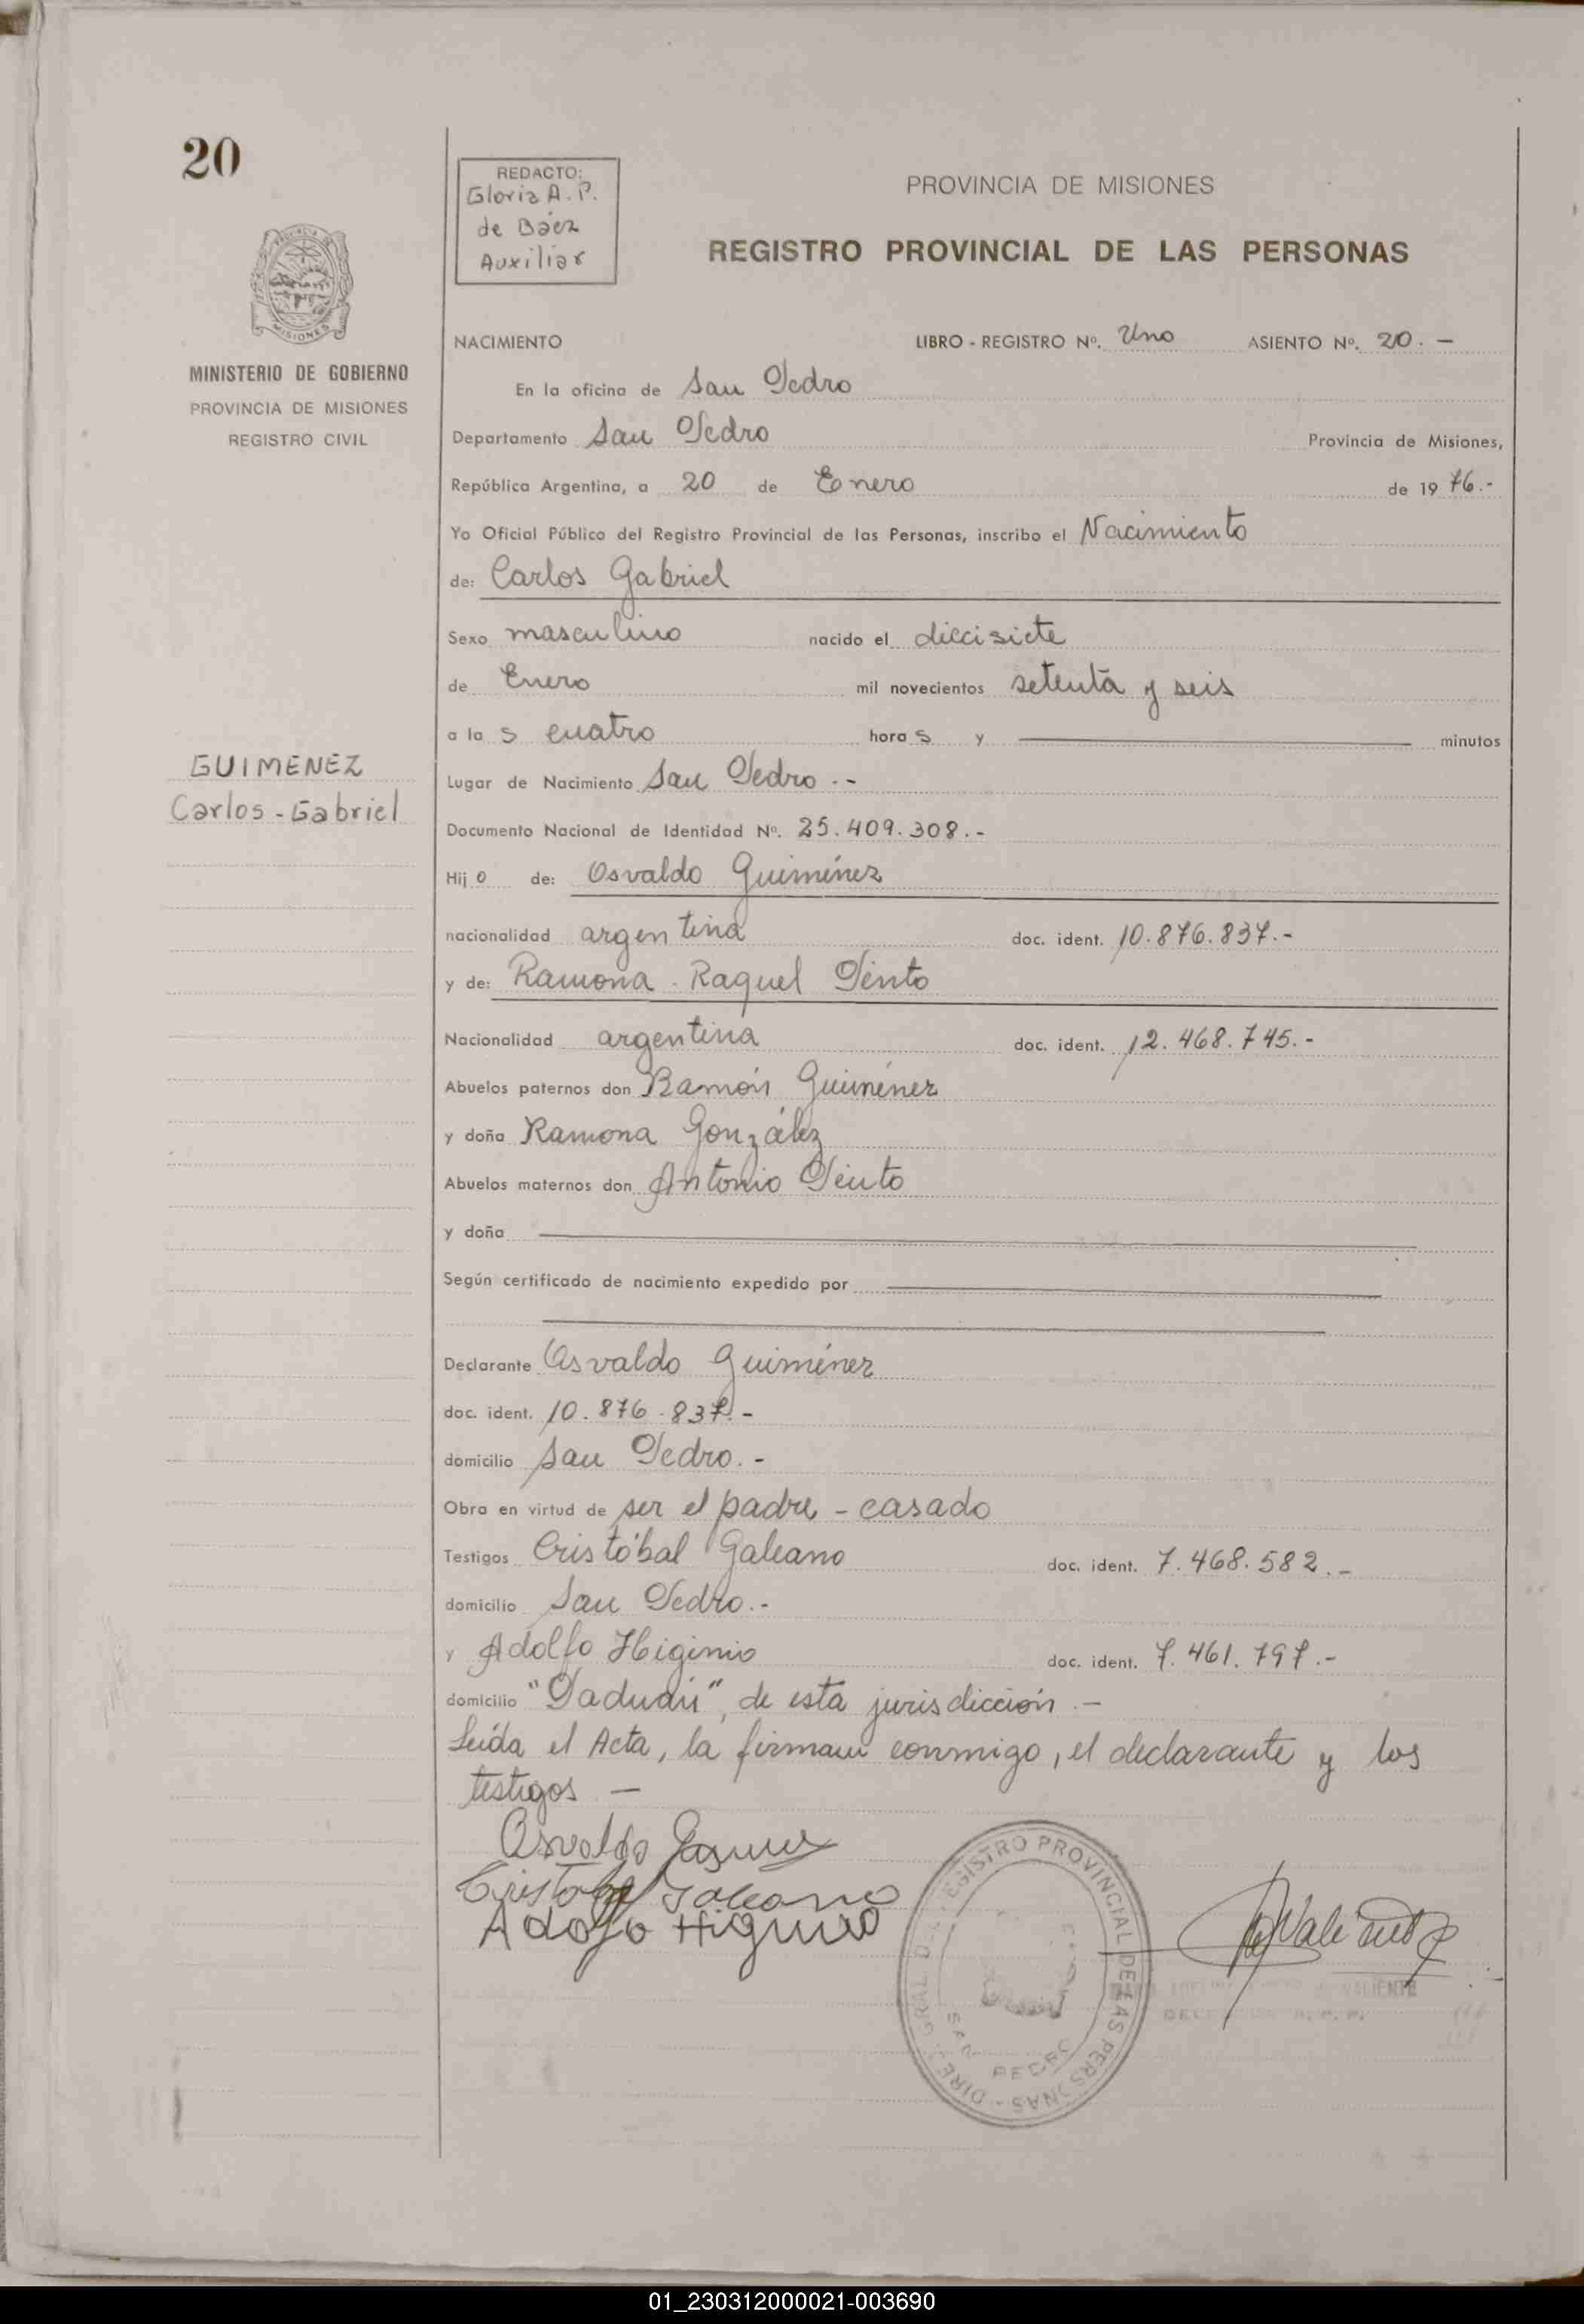 20
REDACTO:
Gloria A. P.
de Báez
Auxiliar
PROVINCIA DE MISIONES
REGISTRO PROVINCIAL DE LAS PERSONAS
MISIONES
MINISTERIO DE GOBIERNO
PROVINCIA DE MISIONES
REGISTRO CIVIL
NACIMIENTO LIBRO - REGISTRO Nº. Uno ASIENTO Nº. 20. -
En la oficina de San Pedro
Departamento San Pedro Provincia de Misiones,
República Argentina, a 20 de Enero de 1976.-
Yo Oficial Público del Registro Provincial de las Personas, inscribo el Nacimiento
de: Carlos Gabriel
Sexo masculino nacido el diecisiete
de Enero mil novecientos setenta y seis
a las cuatro horas y minutos
GUIMENEZ
Carlos - Gabriel
Lugar de Nacimiento San Pedro .-
Documento Nacional de Identidad Nº. 25.409.308.-
Hijo de: Osvaldo Guiménez
nacionalidad argentina doc. ident. 10.876.837.-
y de: Ramona Raquel Pinto
Nacionalidad argentina doc. ident. 12.468.745.-
Abuelos paternos don Ramón Guiménez
y doña Ramona González
Abuelos maternos don Antonio Pinto
y doña
Según certificado de nacimiento expedido por
Declarante Osvaldo Guiménez
doc. ident. 10.876.837.-
domicilio San Pedro.-
Obra en virtud de ser el padre - casado
Testigos Cristóbal Galeano doc. ident. 7.468.582.-
domicilio San Pedro.-
y Adolfo Higinio doc. ident. 7.461.797.-
domicilio "Paduán", de esta jurisdicción.-
Leída el Acta, la firman conmigo, el declarante y los
testigos -
Osvaldo
Cristobal Galeano
Adolfo Higinio
DIRE. GRAL. DEL REGISTRO PROVINCIAL DE LAS PERSONAS -
SAN PEDRO
VALIENTE
01_230312000021-003690